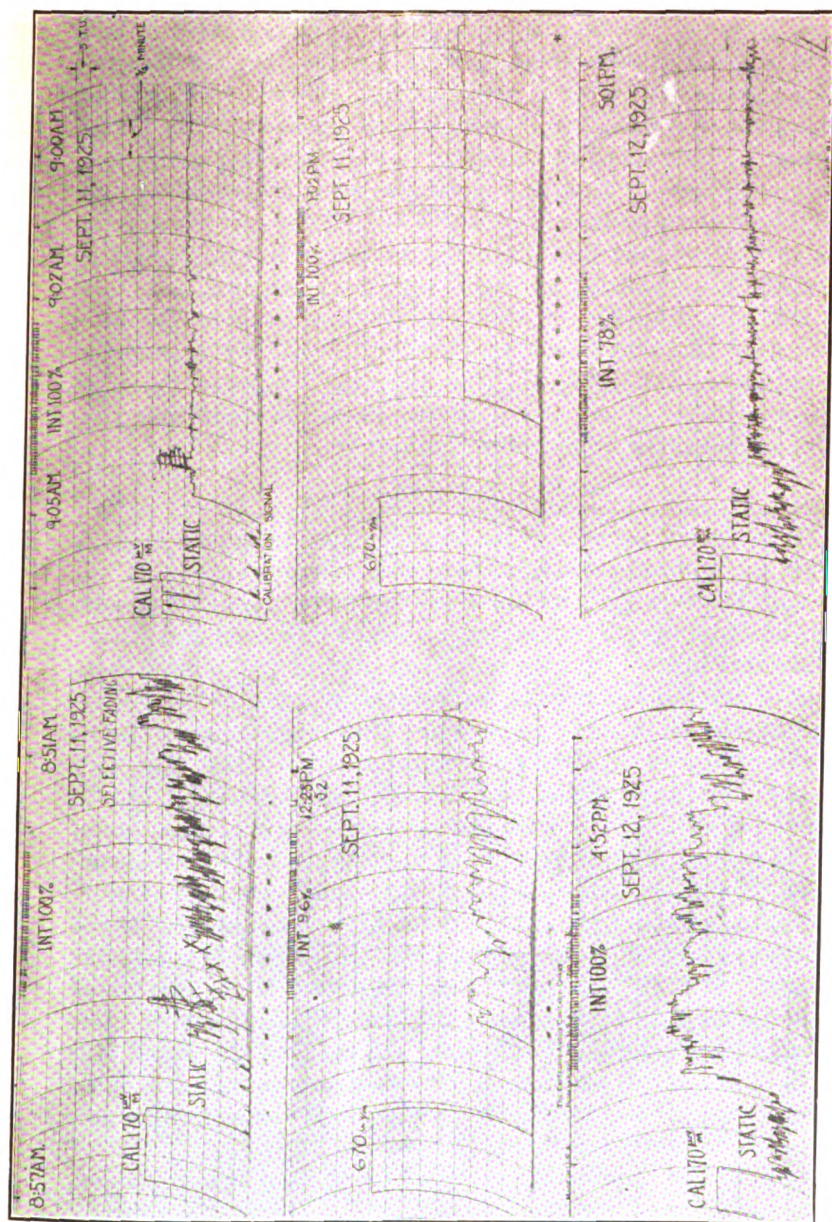 8:57AM. INT 100% 8:51AM.
SEPT. 11, 1925
SELECTIVE FADING
CAL 170
STATIC
9:05AM. INT 100% 9:02AM 9:00AM
SEPT. 11, 1925
5 T.U.
MINUTE
CAL 170
STATIC
CALIBRATION SIGNAL
INT 96% 12:25PM
SEPT. 11, 1925
670
INT 100% 1:02 PM
SEPT. 11, 1925
670
INT 100% 4:52PM.
SEPT. 12, 1925
CAL 170
STATIC
INT 78% 5:01PM.
SEPT. 12, 1925
CAL 170
STATIC